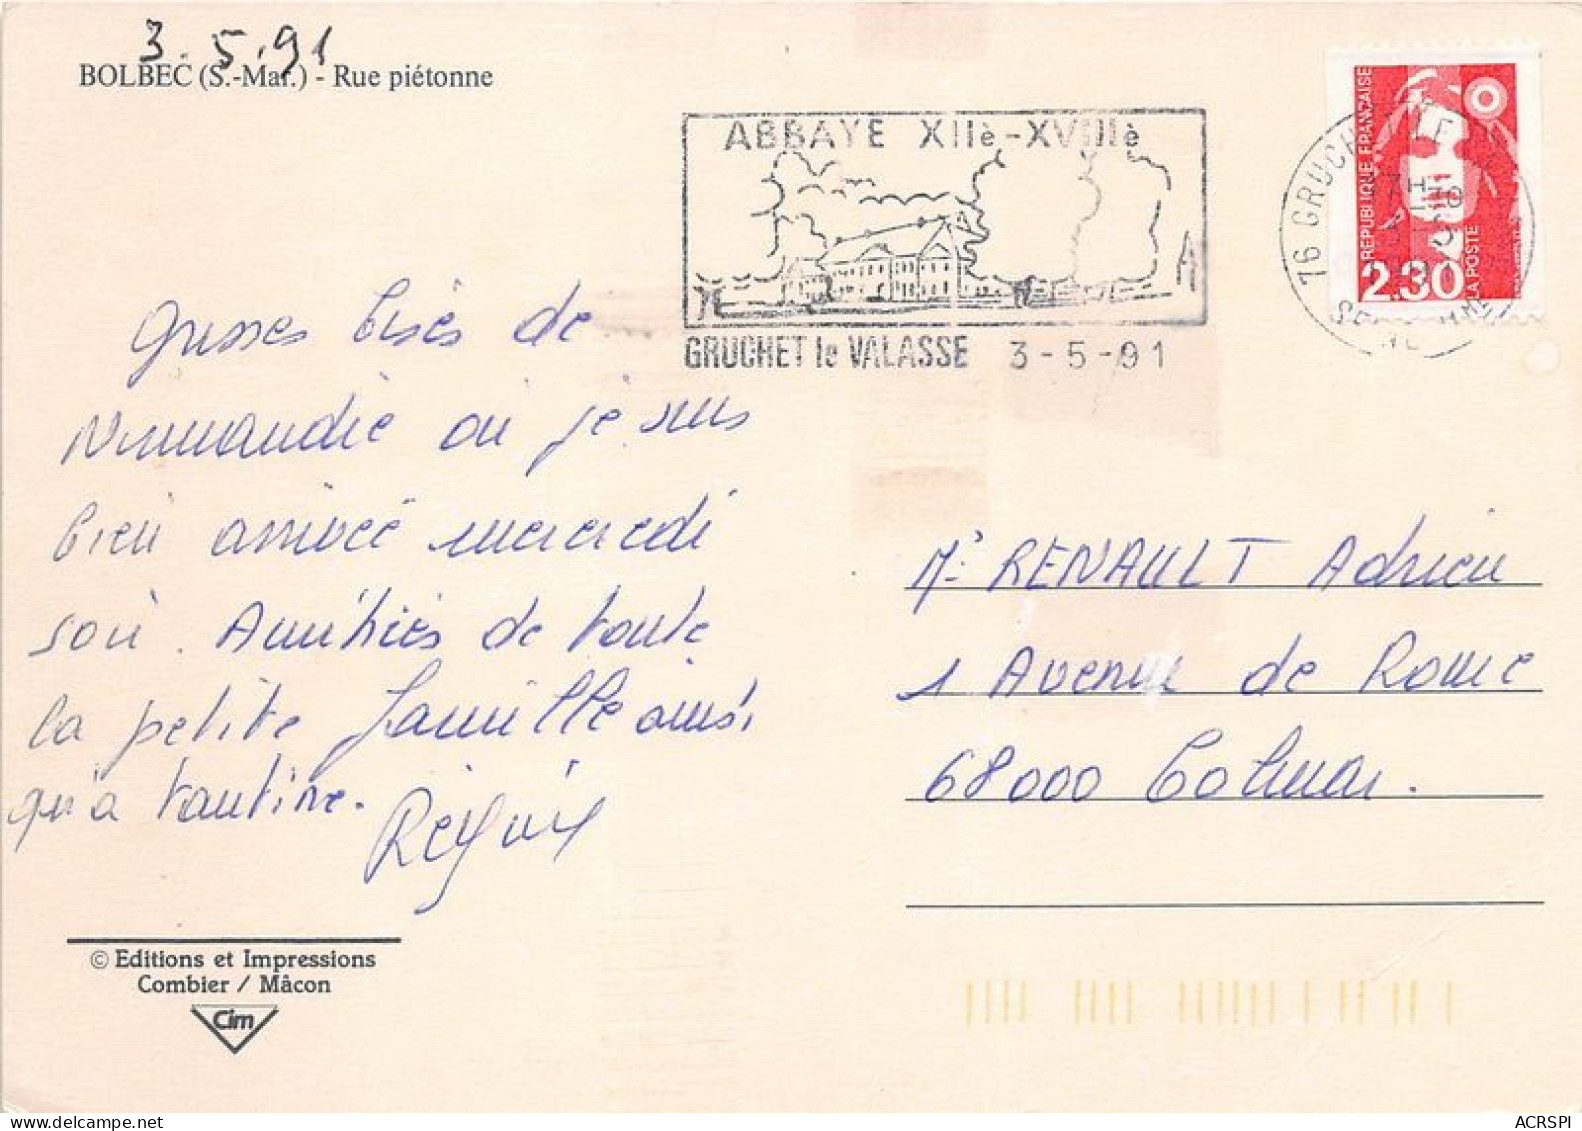 3.5.91
BOLBEC (S.-Mar.) - Rue piétonne
ABBAYE XIIè-XVIIIè
GRUCHET le VALASSE 3-5-91
76 GRUCHET LE
SEINE
REPUBLIQUE FRANÇAISE
2.30
LA POSTE
Grosses bises de
Normandie où je suis
bien arrivée mercredi
soir. Amitiés de toute
la petite famille ainsi
qu'à tantine.
M. RENAULT Adrien
1 Avenue de Rome
68000 Colmar.
© Editions et Impressions
Combier / Mâcon
Cim
ACRSPI